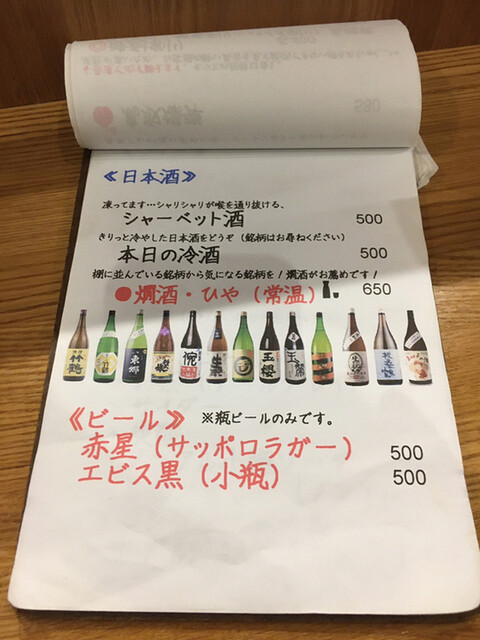 《日本酒》
凍ってます…シャリシャリが喉を通り抜ける、
シャーベット酒 500
きりっと冷やした日本酒をどうぞ（銘柄はお尋ねください）
本日の冷酒 500
棚に並んでいる銘柄から気になる銘柄を！燗酒がお薦めです！
●燗酒・ひや（常温） 650
竹鶴
東郷
玉櫻
《ビール》 ※瓶ビールのみです。
赤星（サッポロラガー） 500
エビス黒（小瓶） 500